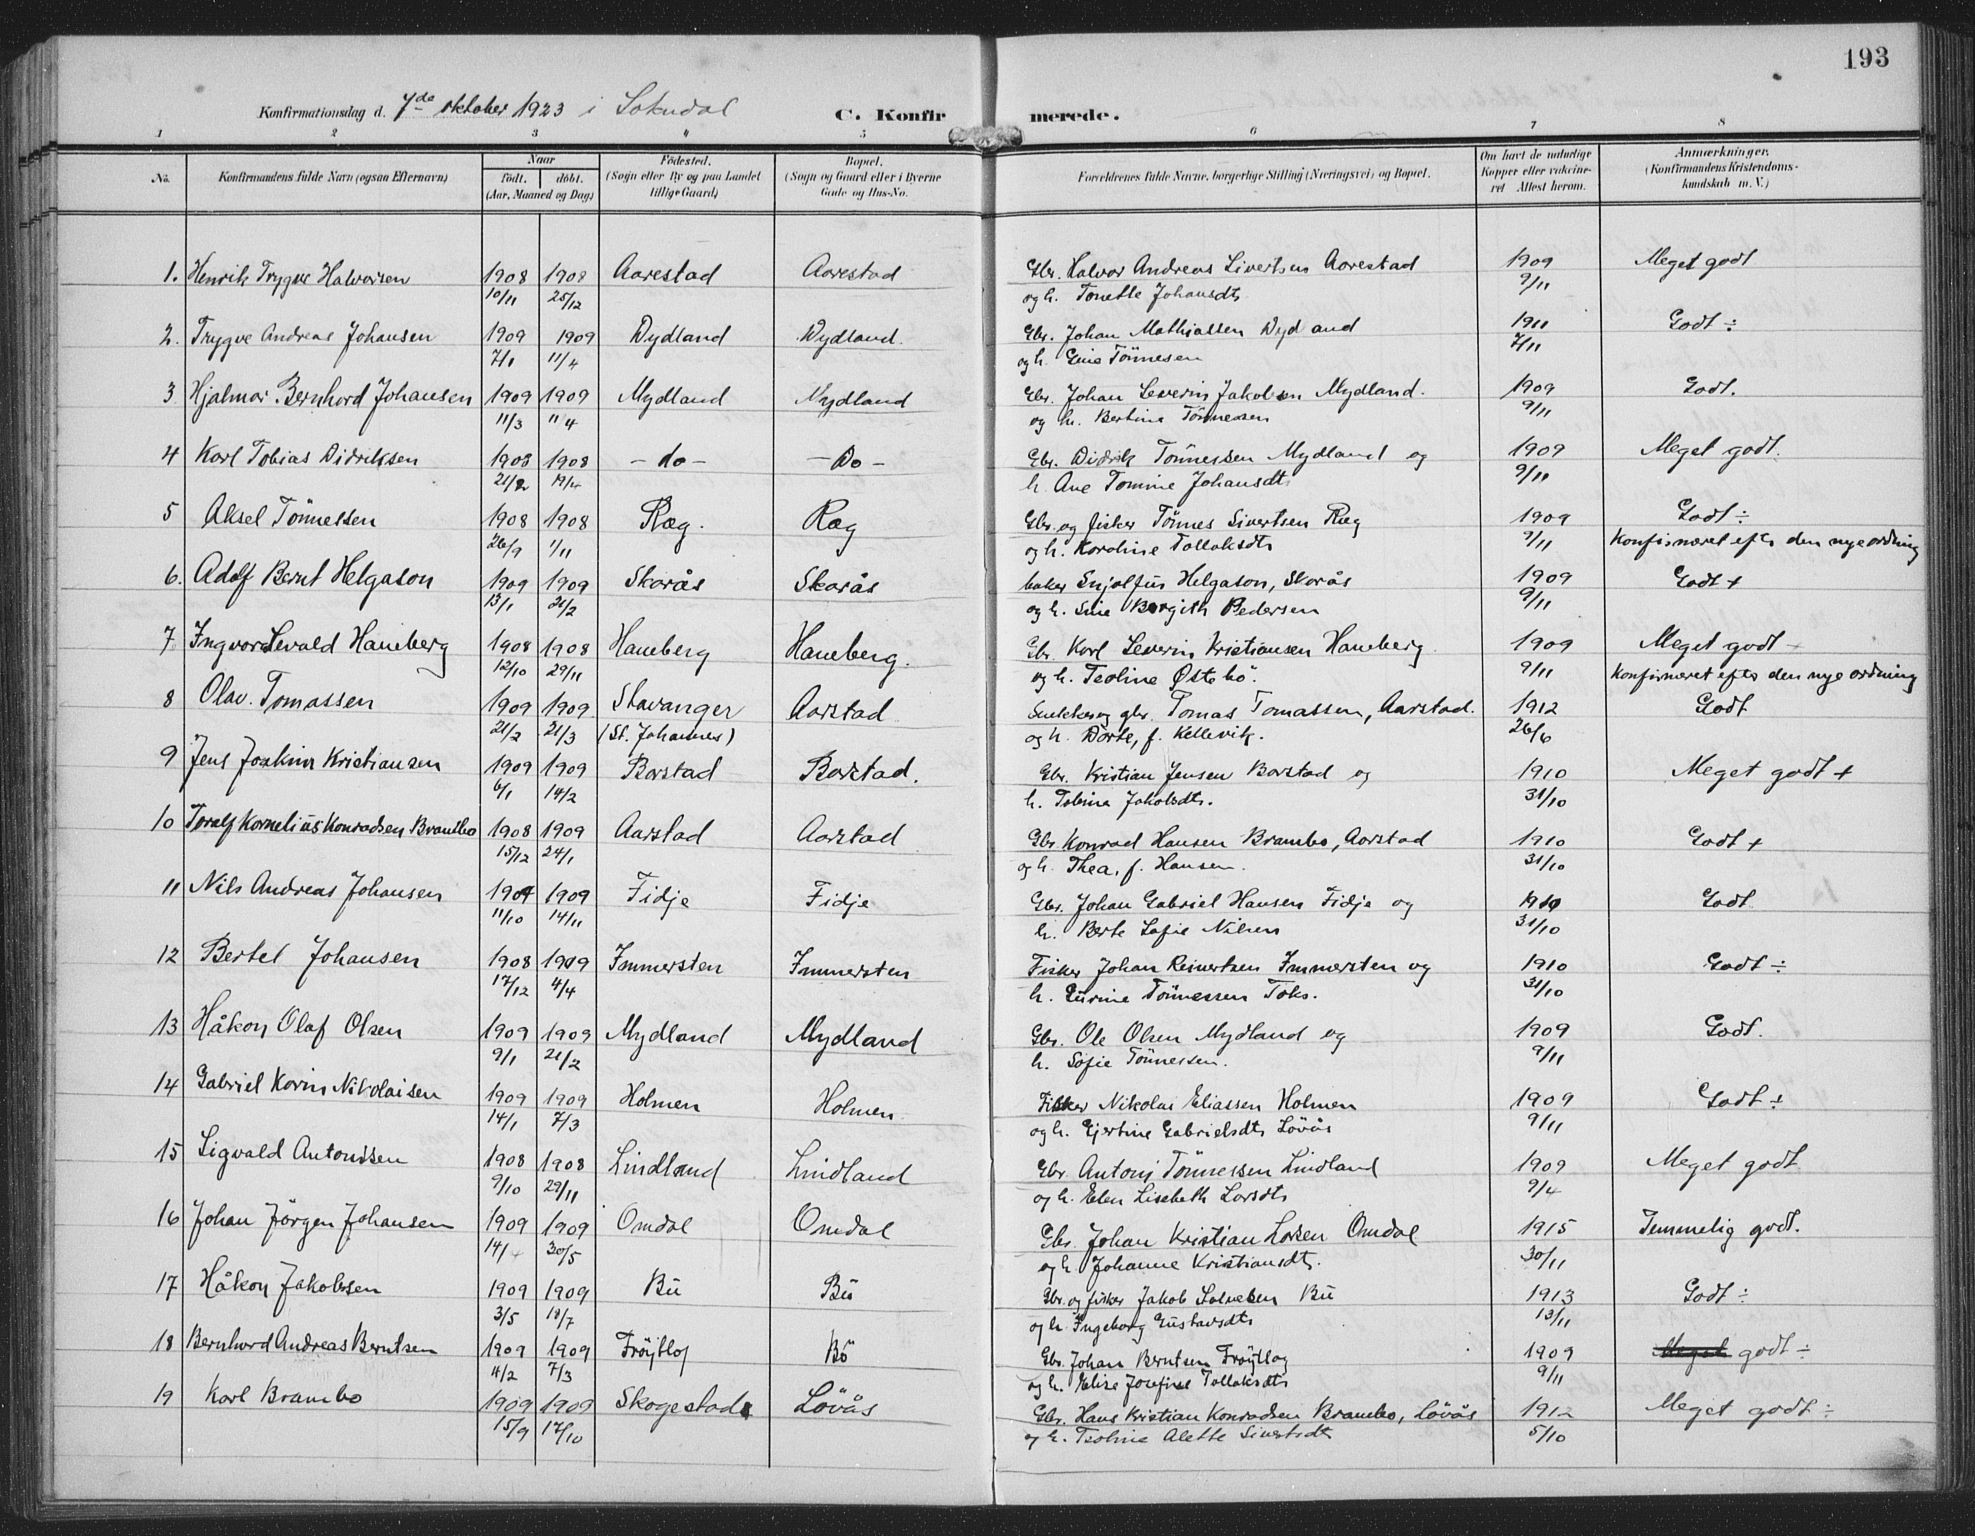 193
Konfirmationsdag d. 7de oktober 1923 i Sokndal
C. Konfirmerede.
1 2 3 4 5 6 7 8
No. Konfirmandens fulde Navn (ogsaa Efternavn) Naar født. døbt. (Aar, Maaned og Dag) Fødested. (Sogn eller By og paa Landet tillige Gaard) Bopæl. (Sogn og Gaard eller i Byerne Gade og Hus-No. Forældrenes fulde Navne, borgerlige Stilling (Næringsvei) og Bopæl. Om havt de naturlige Kopper eller vakcineret Attest herom. Anmærkninger. (Konfirmandens Kristendomskundskab m. V.)
1. Henrik Trygve Halvorsen 1908 1908 Aarestad Aarestad Gbr. Halvor Andreas Sivertsen Aarestad 1909 Meget godt
10/11 25/12 og h. Tonette Johansdt. 9/11
2. Trygve Andreas Johansen 1909 1909 Dydland Dydland. Gbr. Johan Mathiassen Dydland 1911 Godt ÷
7/1 11/4 og h. Gine Tönnesen 7/11
3 Hjalmar Bernhard Johansen 1909 1909 Mydland Mydland Gbr. Johan Severin Jakobsen Mydland. 1909 Godt.
11/3 11/4 og h. Bertine Tönnesen 9/11
4 Karl Tobias Didriksen 1908 1908 - do - - Do - Gbr. Didrik Tönnessen Mydland og 1909 Meget godt.
21/2 19/4 h. Ane Tomine Johansdt. 9/11
5 Aksel Tönnessen 1908 1908 Ræg. Ræg Gbr. og fisker Tönnes Sivertsen Ræg 1909 Godt ÷
26/9 1/11 og h. Karoline Tollaksdt. 9/11 Konfirmeret efter den nye ordning
6. Adolf Bernt Helgason 1909 1909 Skarås Skarås baker Snjolfur Helgason, Skarås 1909 Godt +
13/1 21/2 og h. Sine Borgith Pedersen 9/11
7 Ingvar Sevald Haneberg 1908 1908 Haneberg Haneberg. Gbr. Karl Severin Kristiansen Haneberg. 1909 Meget godt -
12/10 29/11 og h. Teoline Østebö. 9/11 Konfirmeret efter den nye ordning
8 Olav Tomassen 1909 1909 Stavanger Aarstad Snekker og gbr. Tomas Tomassen, Aarstad. 1912 Godt
21/2 21/3 (St. Johannes) og h. Dorte, f. Kellevik. 26/6
9 Jens Joakim Kristiansen 1909 1909 Barstad Barstad. Gbr. Kristian Jensen Barstad og 1910 Meget godt +
6/1 14/2 h. Tobine Jakobsdt. 31/10
10 Toralf Kornelius Konradsen Brambo 1908 1909 Aarstad Aarstad Gbr. Konrad Hansen Brambo, Aarstad 1910 Godt +
15/12 24/1 og h. Thea, f. Hansen. 31/10
11 Nils Andreas Johansen 1909 1909 Fidje Fidje Gbr. Johan Gabriel Hansen Fidje og 1910 Godt
11/10 14/11 h. Berte Sofie Nilsen 31/10
12 Bertel Johansen 1908 1909 Immersten Immersten Fisker Johan Reinertsen Immersten og 1910 Godt ÷
17/12 4/4 h. Gurine Tönnessen Toks. 31/10
13 Håkon Olaf Olsen 1909 1909 Mydland Mydland Gbr. Ole Olsen Mydland og 1909 Godt.
9/1 21/2 h. Sofie Tönnessen. 9/11
14 Gabriel Karin Nikolaisen 1909 1909 Holmen Holmen. Fisker Nikolai Eliassen Holmen 1909 Godt ÷
14/1 7/3 og h. Gjertine Gabrielsdt. Lövås 9/11
15 Sigvald Antonssen 1908 1908 Lindland Lindland Gbr. Antoni Tönnessen Lindland 1909 Meget godt
9/10 29/11 og h. Elen Lisebeth Larsdt. 9/4
16 Johan Jörgen Johansen 1909 1909 Omdal Omdal Gbr. Johan Kristian Larsen Omdal 1915 Temmelig godt.
14/4 30/5 og h. Johanne Kristiansdt. 30/11
17 Håkon Jakobsen 1909 1909 Bu Bö Gbr. og fisker Jakob Salvesen Bu 1913 Godt ÷
3/5 18/7 og h. Ingeborg Gustavsdt. 13/11
18 Bernhard Andreas Berntsen 1909 1909 Fröytlog Bö Gbr. Johan Berntsen Fröytlog 1909 Meget godt ÷
4/2 7/3 og h. Elise Josefine Tollaksdt. 9/11
19 Karl Brambo 1909 1909 Skogestad Lövås Gbr. Hans Kristian Konradsen Brambo, Lövås 1912 Meget godt ÷
15/9 17/10 og h. Teoline Alette Sivertsdt. 5/10